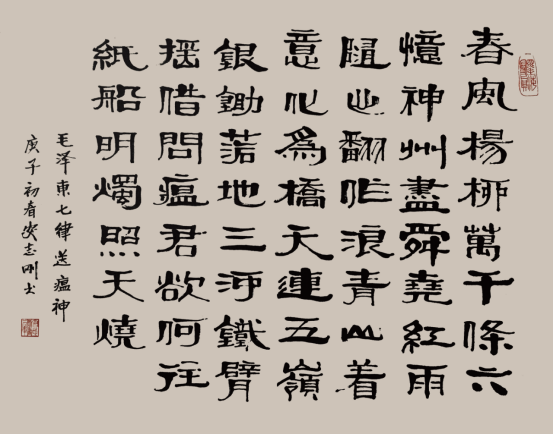 春風楊柳萬千條六
憶神州盡舜堯紅雨
隨心翻作浪青山着
意化為橋天連五嶺
銀鋤落地三河鐵臂
搖借問瘟君欲何往
紙船明燭照天燒
毛泽東七律送瘟神
庚子初春安志刚书